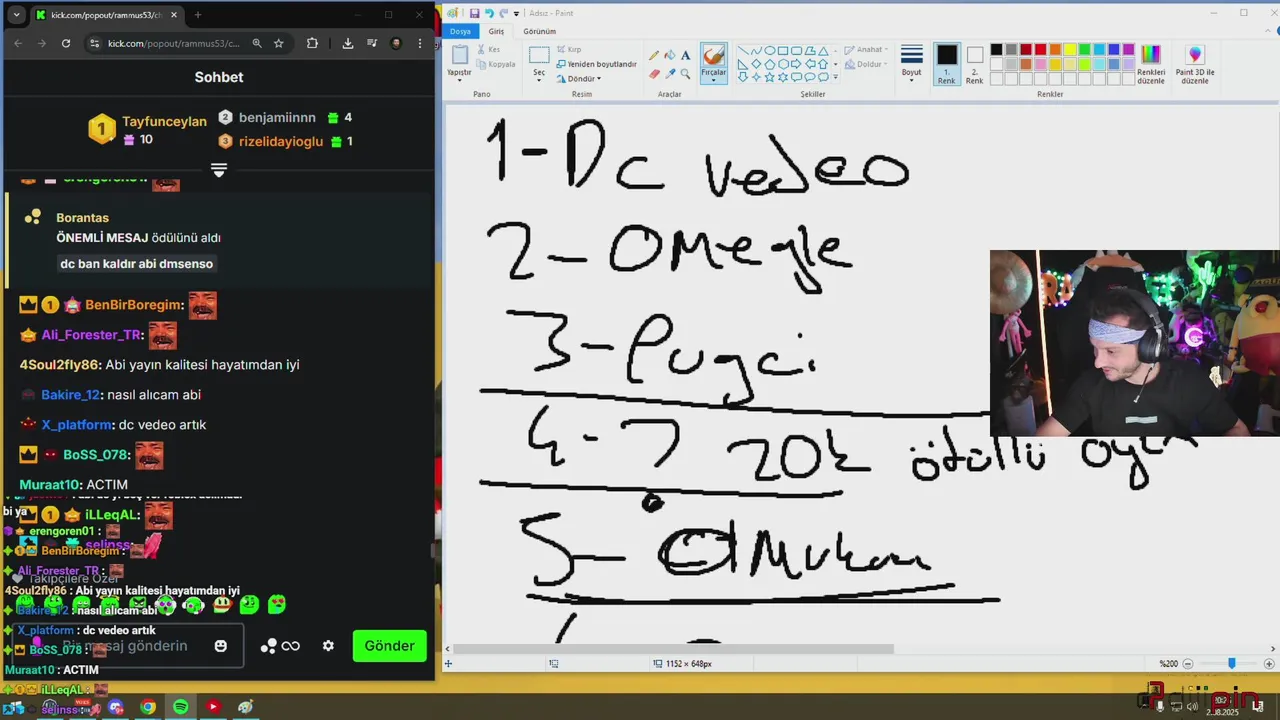 kick.com/popout/rammus53/ch
Adsız - Paint
kick.com/popout/rammus53/c...
Dosya
Giriş
Görünüm
Yapıştır
Kes
Kopyala
Pano
Seç
Kırp
Yeniden boyutlandır
Döndür
Resim
Araçlar
Fırçalar
Şekiller
Anahat
Doldur
Boyut
1. Renk
2. Renk
Renkler
Renkleri düzenle
Paint 3D ile düzenle
Sohbet
1 Tayfunceylan 10
2 benjamiinnn 4
3 rizelidayioglu 1
erengoren01:
Borantas
ÖNEMLİ MESAJ ödülünü aldı
dc ban kaldır abi dmsenso
BenBirBoregim:
Ali_Forester_TR:
4Soul2fly86: Abi yayın kalitesi hayatımdan iyi
Bakire_12: nasıl alıcam abi
X_platform: dc vedeo artık
BoSS_078:
Muraat10: ACTIM
bi ya
iLLeQAL:
erengoren01 :
selinss
BenBirBoregim :
Ali_Forester_TR :
Takipçilere Özel
4Soul2fly86 : Abi yayın kalitesi hayatımdan iyi
Bakire_12 : nasıl alıcam abi
X_platform : dc vedeo artık
Bir mesaj gönderin
Gönder
BoSS_078 :
Muraat10: ACTIM
iLLeQAL :
selinss :
1-Dc vedeo
2-Omegle
3-Pugci
4-7 20k ödüllü
5-
1152 × 648px
%200
2.08.2025